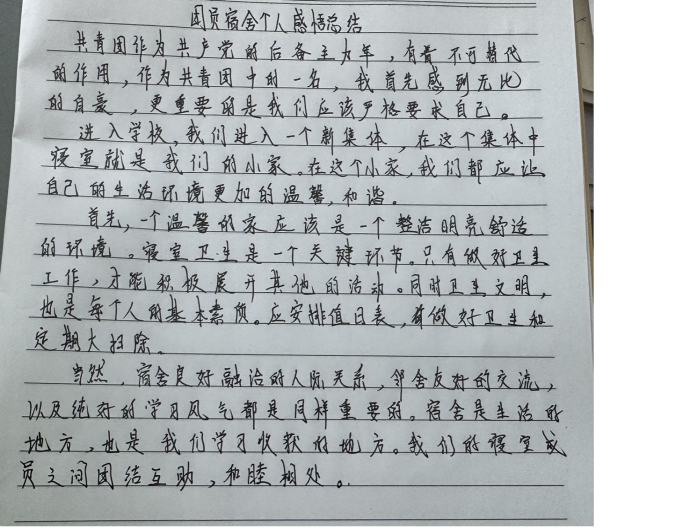 团员宿舍个人感悟总结
共青团作为共产党的后备主力军,有着不可替代
的作用,作为共青团中的一名,我首先感到无比
的自豪,更重要的是我们应该严格要求自己。
进入学校,我们进入一个新集体,在这个集体中
寝室就是我们的小家。在这个小家,我们都应让
自己的生活环境更加的温馨,和谐。
首先,一个温馨的家应该是一个整洁明亮舒适
的环境。寝室卫生是一个关键环节。只有做好卫生
工作,才能积极展开其他的活动。同时卫生文明,
也是每个人的基本素质。应安排值日表,做好卫生和
定期大扫除。
当然,宿舍良好融洽的人际关系,邻舍友好的交流,
以及纯好的学习风气都是同样重要的。宿舍是生活的
地方,也是我们学习收获的地方。我们的寝室成
员之间团结互助,和睦相处。